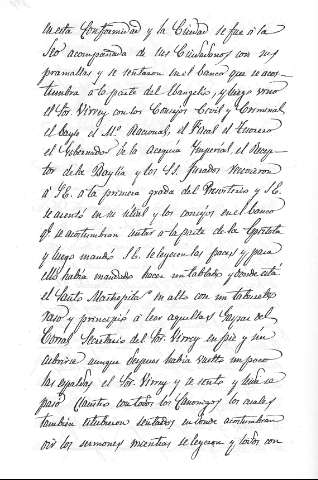 en esta Conformidad y la Ciudad se fue a la
Seo acompañada de sus Ciudadanos con sus
gramallas y se sentaron en el banco que se acos-
tumbra a la parte del Evangelio, y luego vino
el Sor. Virrey con los Consejos Civil y Criminal
el bayle el Mo. Racional, el Fiscal el Tesorero
el Gobernador de la acequia Imperial el Recep-
tor de la Baylia y los SS. Jurados
a S.E. a la primera grada del Presbiterio y S.E.
se asento en su sitial y los consejos en el banco
qe. se acostumbran sentar a la parte de la Epistola
y luego mandó S.E. se leyesen las paces y para
ello habia mandado hacer un tablado donde está
el Santo en alto con un taburete
raso y principió a leer aquellas Gaspar del
Secretario del Sor. Virrey en pie y sin
sobrero aunque despues habia vuelto un poco
las espaldas el Sor. Virrey y se sento y
pasó Claustro con todos los Canonigos los cuales
tambien estuvieron sentados en donde acostumbran
oir los sermones mientras se leyeron y todos con